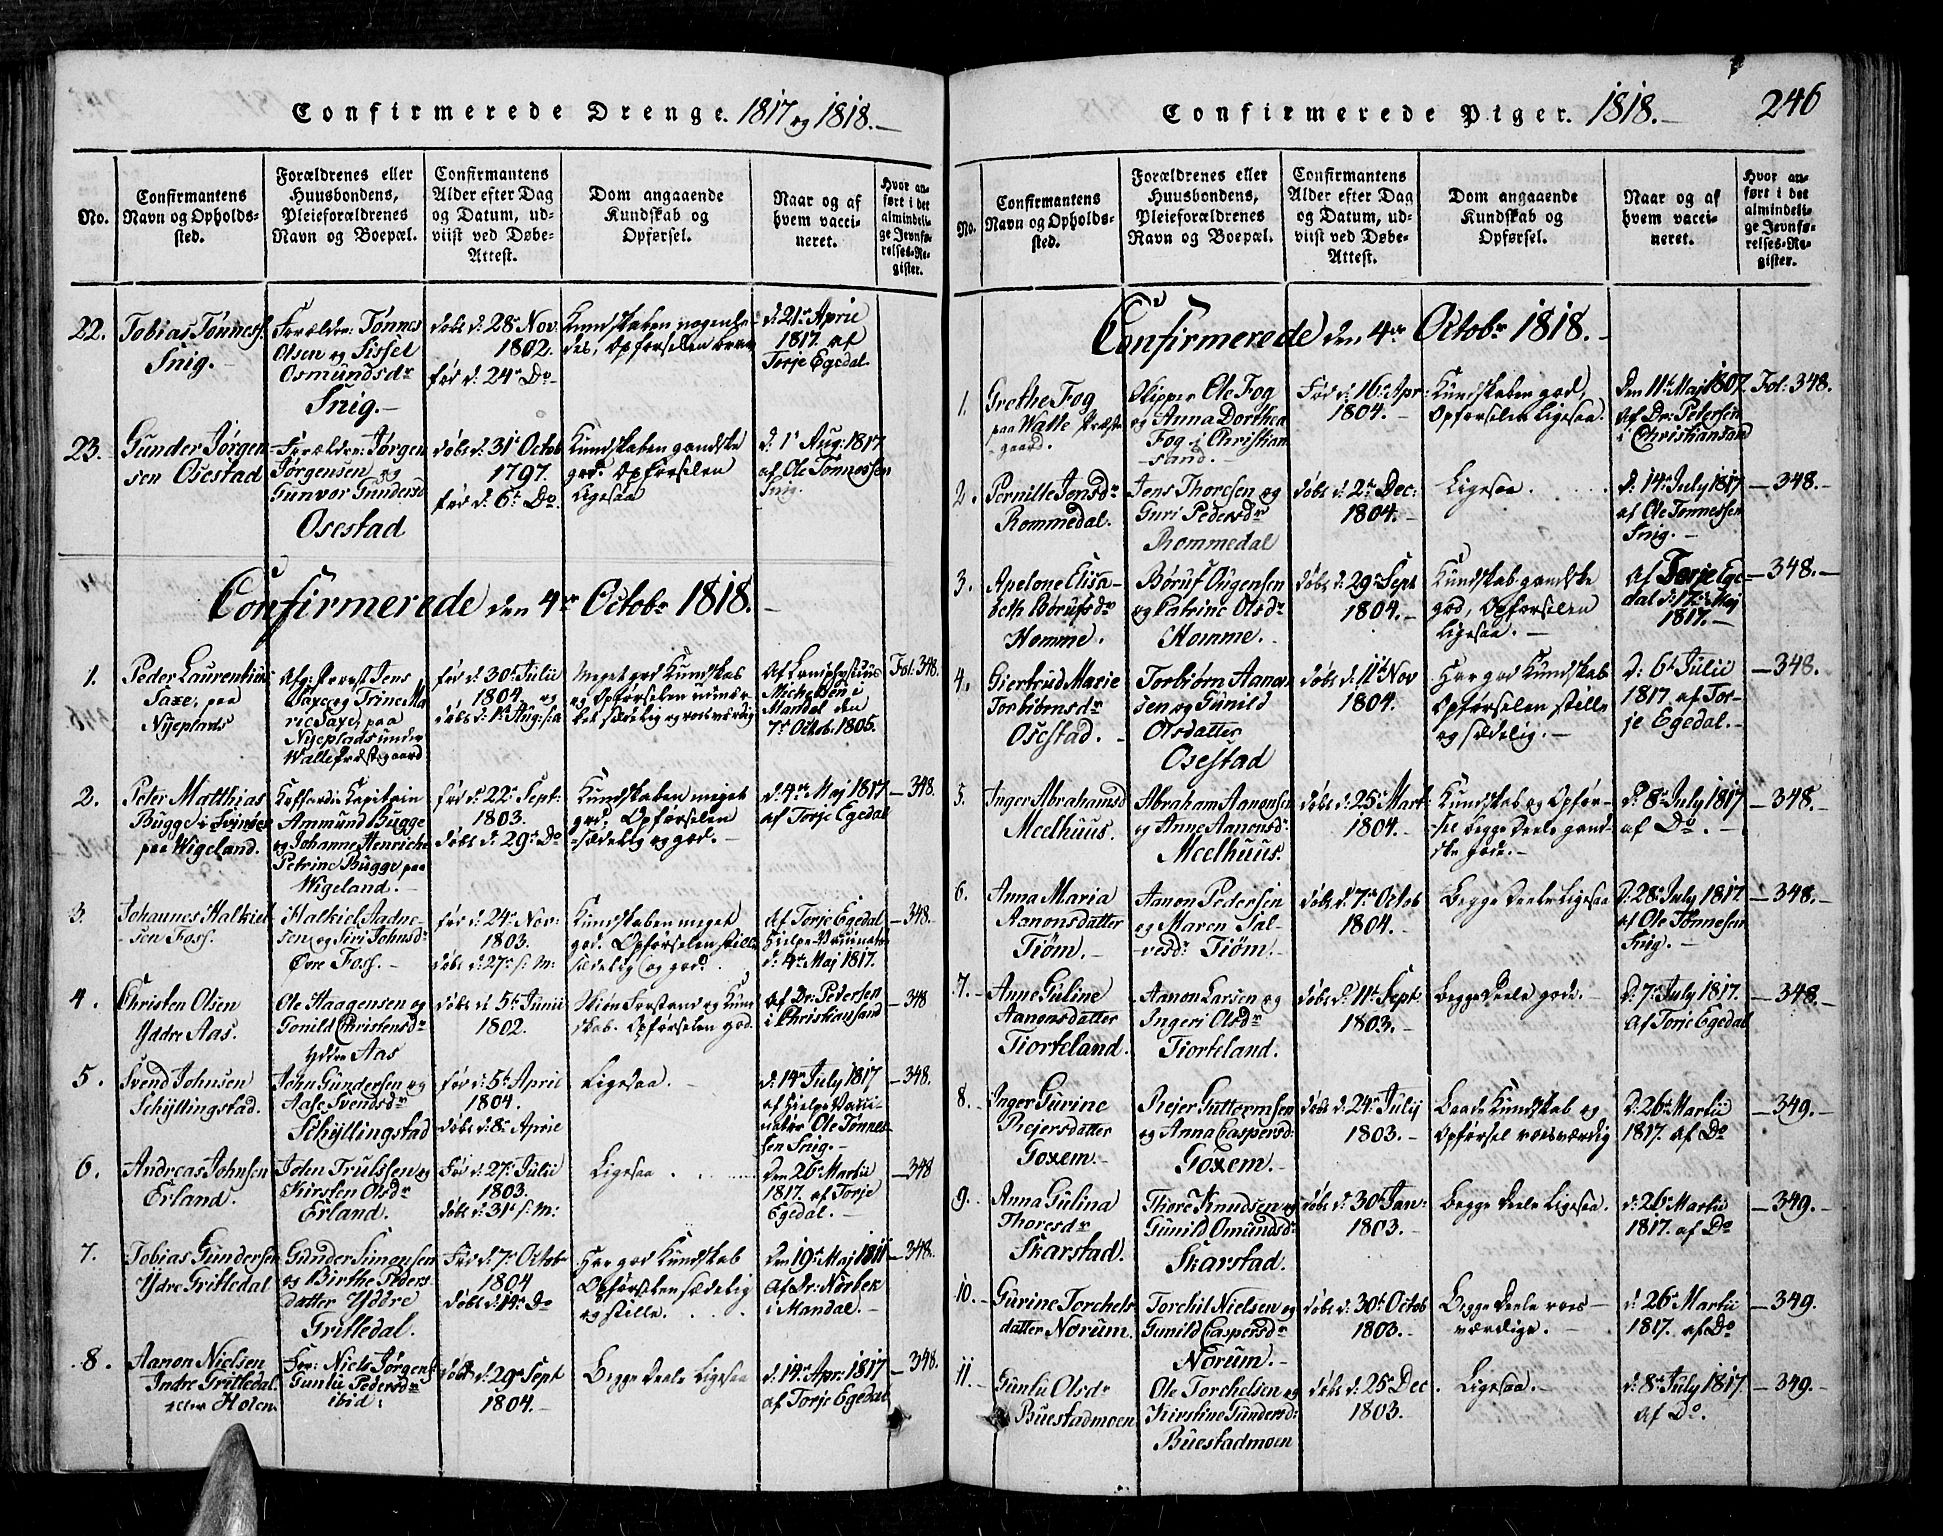 Confirmerede Drenge. 1817 og 1818.
No.
Confirmantens
Navn og Opholds-
sted.
Forældrenes eller
Huusbondens,
Pleieforældrenes
Navn og Boepæl.
Confirmantens
Alder efter Dag
og Datum, ud-
viist ved Døbe-
Attest.
Dom angaaende
Kundskab og
Opførsel.
Naar og af
hvem vacci-
neret.
Hvor an-
ført i det
almindeli-
ge Jevnfø-
relses-Re-
gister.
22.
Tobias Tønness.
Snig.
Forældre: Tønnes
Olsen og Sissel
Osmundsdr
Snig.
døbt d: 28r Nov.
1802.
fød d: 24r Do
Kundskaben nogenle-
des, Opførselen brav
d. 21r April
1817. af
Torje Egedal
23.
Gunder Jørgen
sen Osestad
Forældre: Jørgen
Jørgensen og
Gunvor Gundersd
Osestad
døbt d: 31t Octob
1797.
fød d: 6t Do.
Kundskaben gandske
god. Opførselen
Ligesaa
d. 1r Aug. 1817
af Ole Tønnessen
Snig.
Confirmerede den 4de Octobr 1818.
1.
Peder Laurentius
Saxe, paa
Nyeplads
Afg: Præst Jens
Saxe og Trine Ma
rie Saxe, paa
Nyeplads under
Walle Præstegaard
fød d: 30te Julii
1804 og
døbt d: 1te Aug: s:a
Meget god Kundskab
og Opførselen udmær-
ket sædelig og roesværdig
Michelsen i
Mandal den
7de Octob. 1805.
Fol: 348.
2.
Peter Matthias
Bugge i Svinøer
paa Wigeland.
Koffardi Capitain
Ammund Bugge
og Johanne Henriche
Petrine Bugge paa
Wigeland.
fød d: 22r Sept:
1803.
døbt d: 29r Do
Kundskaben meget
god. Opførselen
sædelig og god.
d. 4de Maj 1817
af Torje Egedal
348.
3.
Johannes Halkiel
sen Foss.
Halkiel Aadne-
sen og Siri Johnsdr
Øvre Foss.
fød d: 24r Nov:
1803.
døbt d: 27r s: M:
Kundskaben meget
god. Opførselen stille
sædelig og god.
Af Torje Egedal
Hielpe-Vaccinatør
d: 4de Maj 1817.
348.
4.
Christen Olsen
Ydre Aas.
Ole Haagensen og
Gonild Christensdr
Ydre Aas
døbt d 5te Junii
1802.
Skiøn Forstand og Kund
skab. Opførselen god.
Af Dr. Petersen
i Christiansand
348
5.
Svend Johnsen
Schyllingstad.
John Gundersen og
Aase Svendsdr
Schyllingstad
fød d: 5te April
1804.
døbt d: 8de April
Ligesaa.
d. 14r July 1817
af Hielpe Vacci-
natør Ole Tønnes-
sen Snig.
348.
6.
Andreas Johnsen
Erland.
John Trulssen og
Kirsten Olsdr
Erland.
Fød d: 27r Julii
1803.
døbt d: 31t s: M:
Ligesaa
Den 26r Martii
1817. af Torje
Egedal.
348
7.
Tobias Gundersen
Ydre Grilledal
Gunder Simensen
og Birthe Peders
datter Ydre
Grilledal.
Fød d: 7r Octobr
1804
Døbt d: 14r Do
Har god Kundskab
Opførselen sædelig
og stille.
Den 19de Maj 1811
af Dr. Nørbek
i Mandal.
348.
8.
Aanon Nielsen
Indre Grilledal
eller Holen
For: Niels Jørgens
Gunlu Pedersdr
ibid:
døbt d: 29r Sept
1804.
Begge Deele Ligesaa
d. 14r Apr. 1817
af Torje Egedal
348.
Confirmerede Piger. 1818.
246
No.
Confirmantens
Navn og Opholds-
sted.
Forældrenes eller
Huusbondens,
Pleieforældrenes
Navn og Boepæl.
Confirmantens
Alder efter Dag
og Datum, ud-
viist ved Døbe-
Attest.
Dom angaaende
Kundskab og
Opførsel.
Naar og af
hvem vacci-
neret.
Hvor an-
ført i det
almindeli-
ge Jevnfø-
relses-Re-
gister.
Confirmerede den 4de Octobr 1818.
1.
Grethe Fog
paa Walle Præste
gaard.
Skipper Ole Fog
og Anna Dorthea
Fog i Christian
sand.
Fød d: 16r Apr
1804.
Kundskaben god,
Opførselen Ligesaa.
Den 11te Maj 1807.
af Dr: Petersen
i Christiansand
Fol: 348.
2.
Pernille Jensdr
Rommedal.
Jens Thoresen og
Guri Pedersdr
Rommedal
døbt d: 2r Dec:
1804.
Ligesaa.
D: 14r July 1817
af Ole Tønnessen
Snig.
348.
3.
Apelone Elisa-
beth Børufsdr
Homme.
Børuf Ougensen
og Catrine Olsdr
Homme.
døbt d: 29r Sept
1804.
Kundskab gandske
god, Opførselen
Ligesaa.
Af Torje Ege
dal d: 17de Maj
1817.
348.
4.
Giertrud Marie
Torbiørnsdr
Osestad.
Torbiørn Aanon
sen og Gunild
Olsdatter
Osestad
døbt d: 11te Nov
1804.
Har god Kundskab
Opførselen stille
og sædelig.
D: 6te Julii
1817. af Tor-
je Egedal.
348.
5.
Inger Abrahamsd
Meelhuus.
Abraham Aanonsen
og Anne Aanonsd:
Meelhuus.
døbt d: 25r Mart
1804.
Kundskab og Opfør-
sel begge Deele gand-
ske gode.
D. 8de July 1817
af Do.
348.
6.
Anna Maria
Aanonsdatter
Tiøm.
Aanon Pedersen
og Maren Sal-
vesdr Tiøm.
døbt d. 7r Octob
1804.
Begge Deele Ligesaa
D. 28r July 1817
af Ole Tønnesen
Snig.
348.
7.
Anne Guline
Aanonsdatter
Tiorteland.
Aanon Larsen og
Ingeri Olsdr
Tiorteland.
døbt d: 11te Sept
1803.
Begge Deele gode.
D. 7de July 1817.
Af Torje Egedal
348.
8.
Inger Gurine
Rejersdatter
Goxem.
Rejer Guttormsen
og Anna Caspersd:
Goxem.
døbt d: 24r July
1803.
Baade Kundskab og
Opførsel roesværdig
D: 26r Martii
1817. af Do
349.
9.
Anna Gulina
Thoresdr
Skarstad.
Thore Knudsen og
Gunild Omundsd:
Skarstad.
døbt d: 30te Jan:
1803.
Begge Deele Ligesaa.
d: 26r Martii
1817. af Do
349.
10.
Gurine Torchels
datter Norum.
Torchil Nielsen og
Gunild Caspersdr
Norum.
døbt d: 30te Octob
1803.
Begge Deele roes-
værdige.
d: 26r Martii
1817. af Do
349.
11.
Gunlu Olsdr
Buestadmoen
Ole Torchelsen og
Kirstine Gundersd:
Buestadmoen
døbt d: 25r Dec
1803.
Ligesaa.
d: 8de July 1817.
af Do.
349.